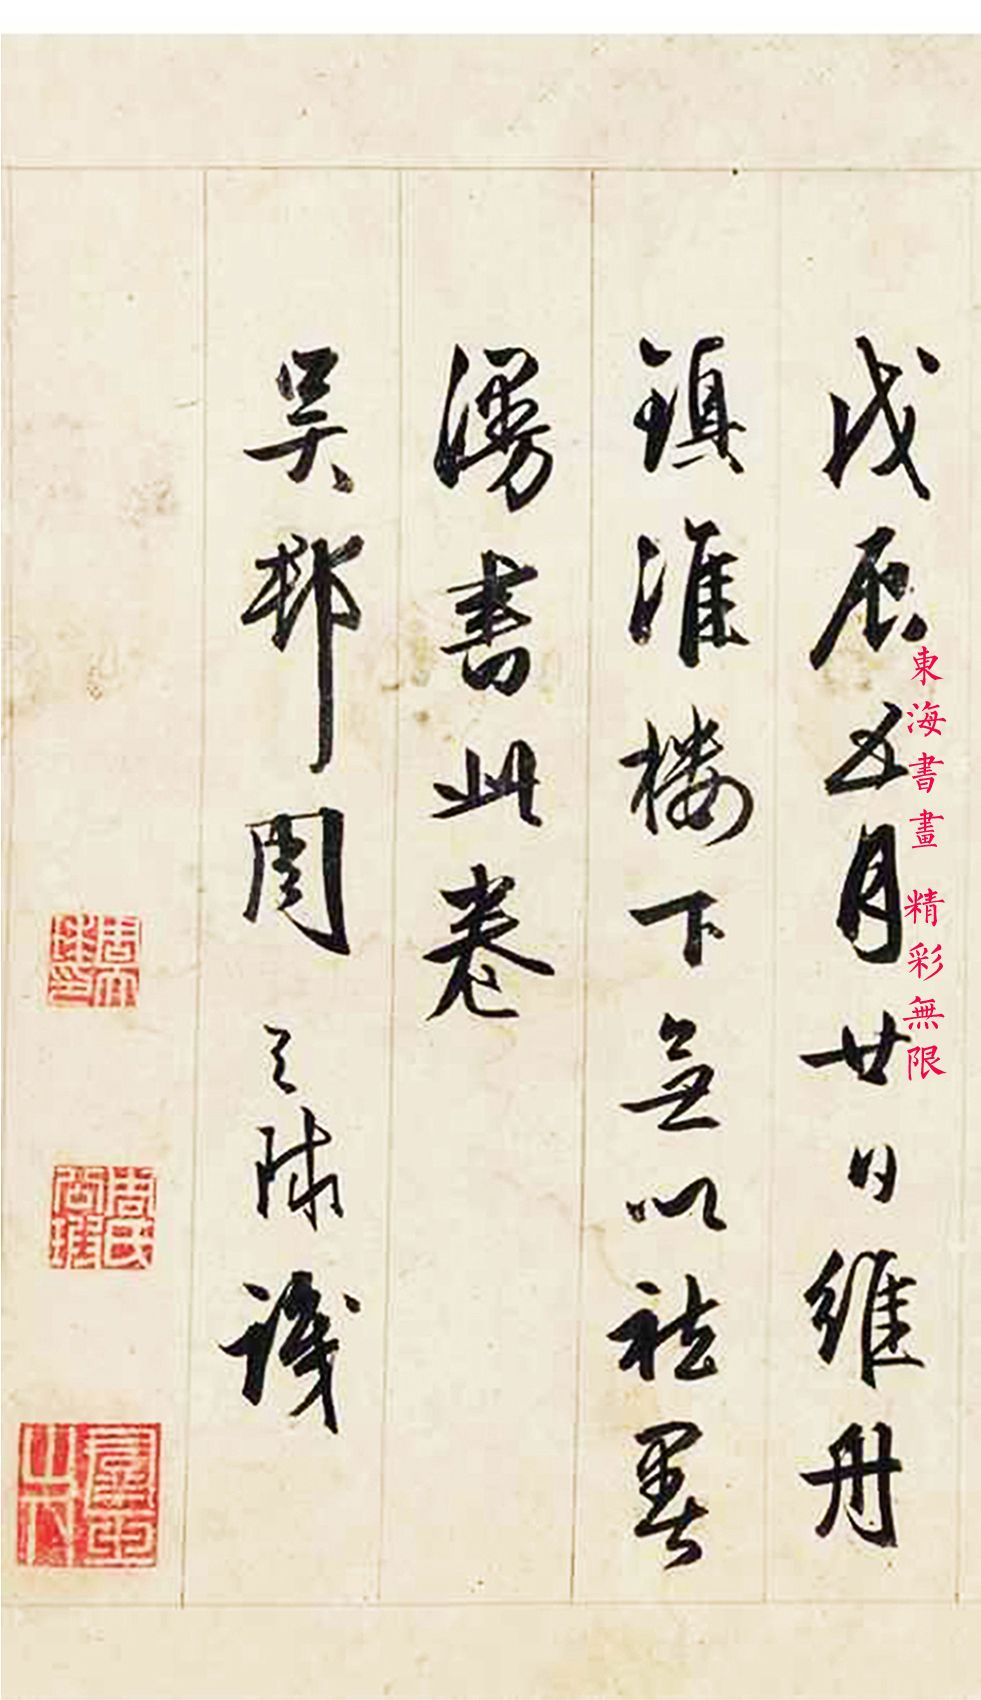 戊辰五月廿日維舟
鎮淮楼下無以祛暑
漫書此卷
吳郡周之球識
東海書畫 精彩無限